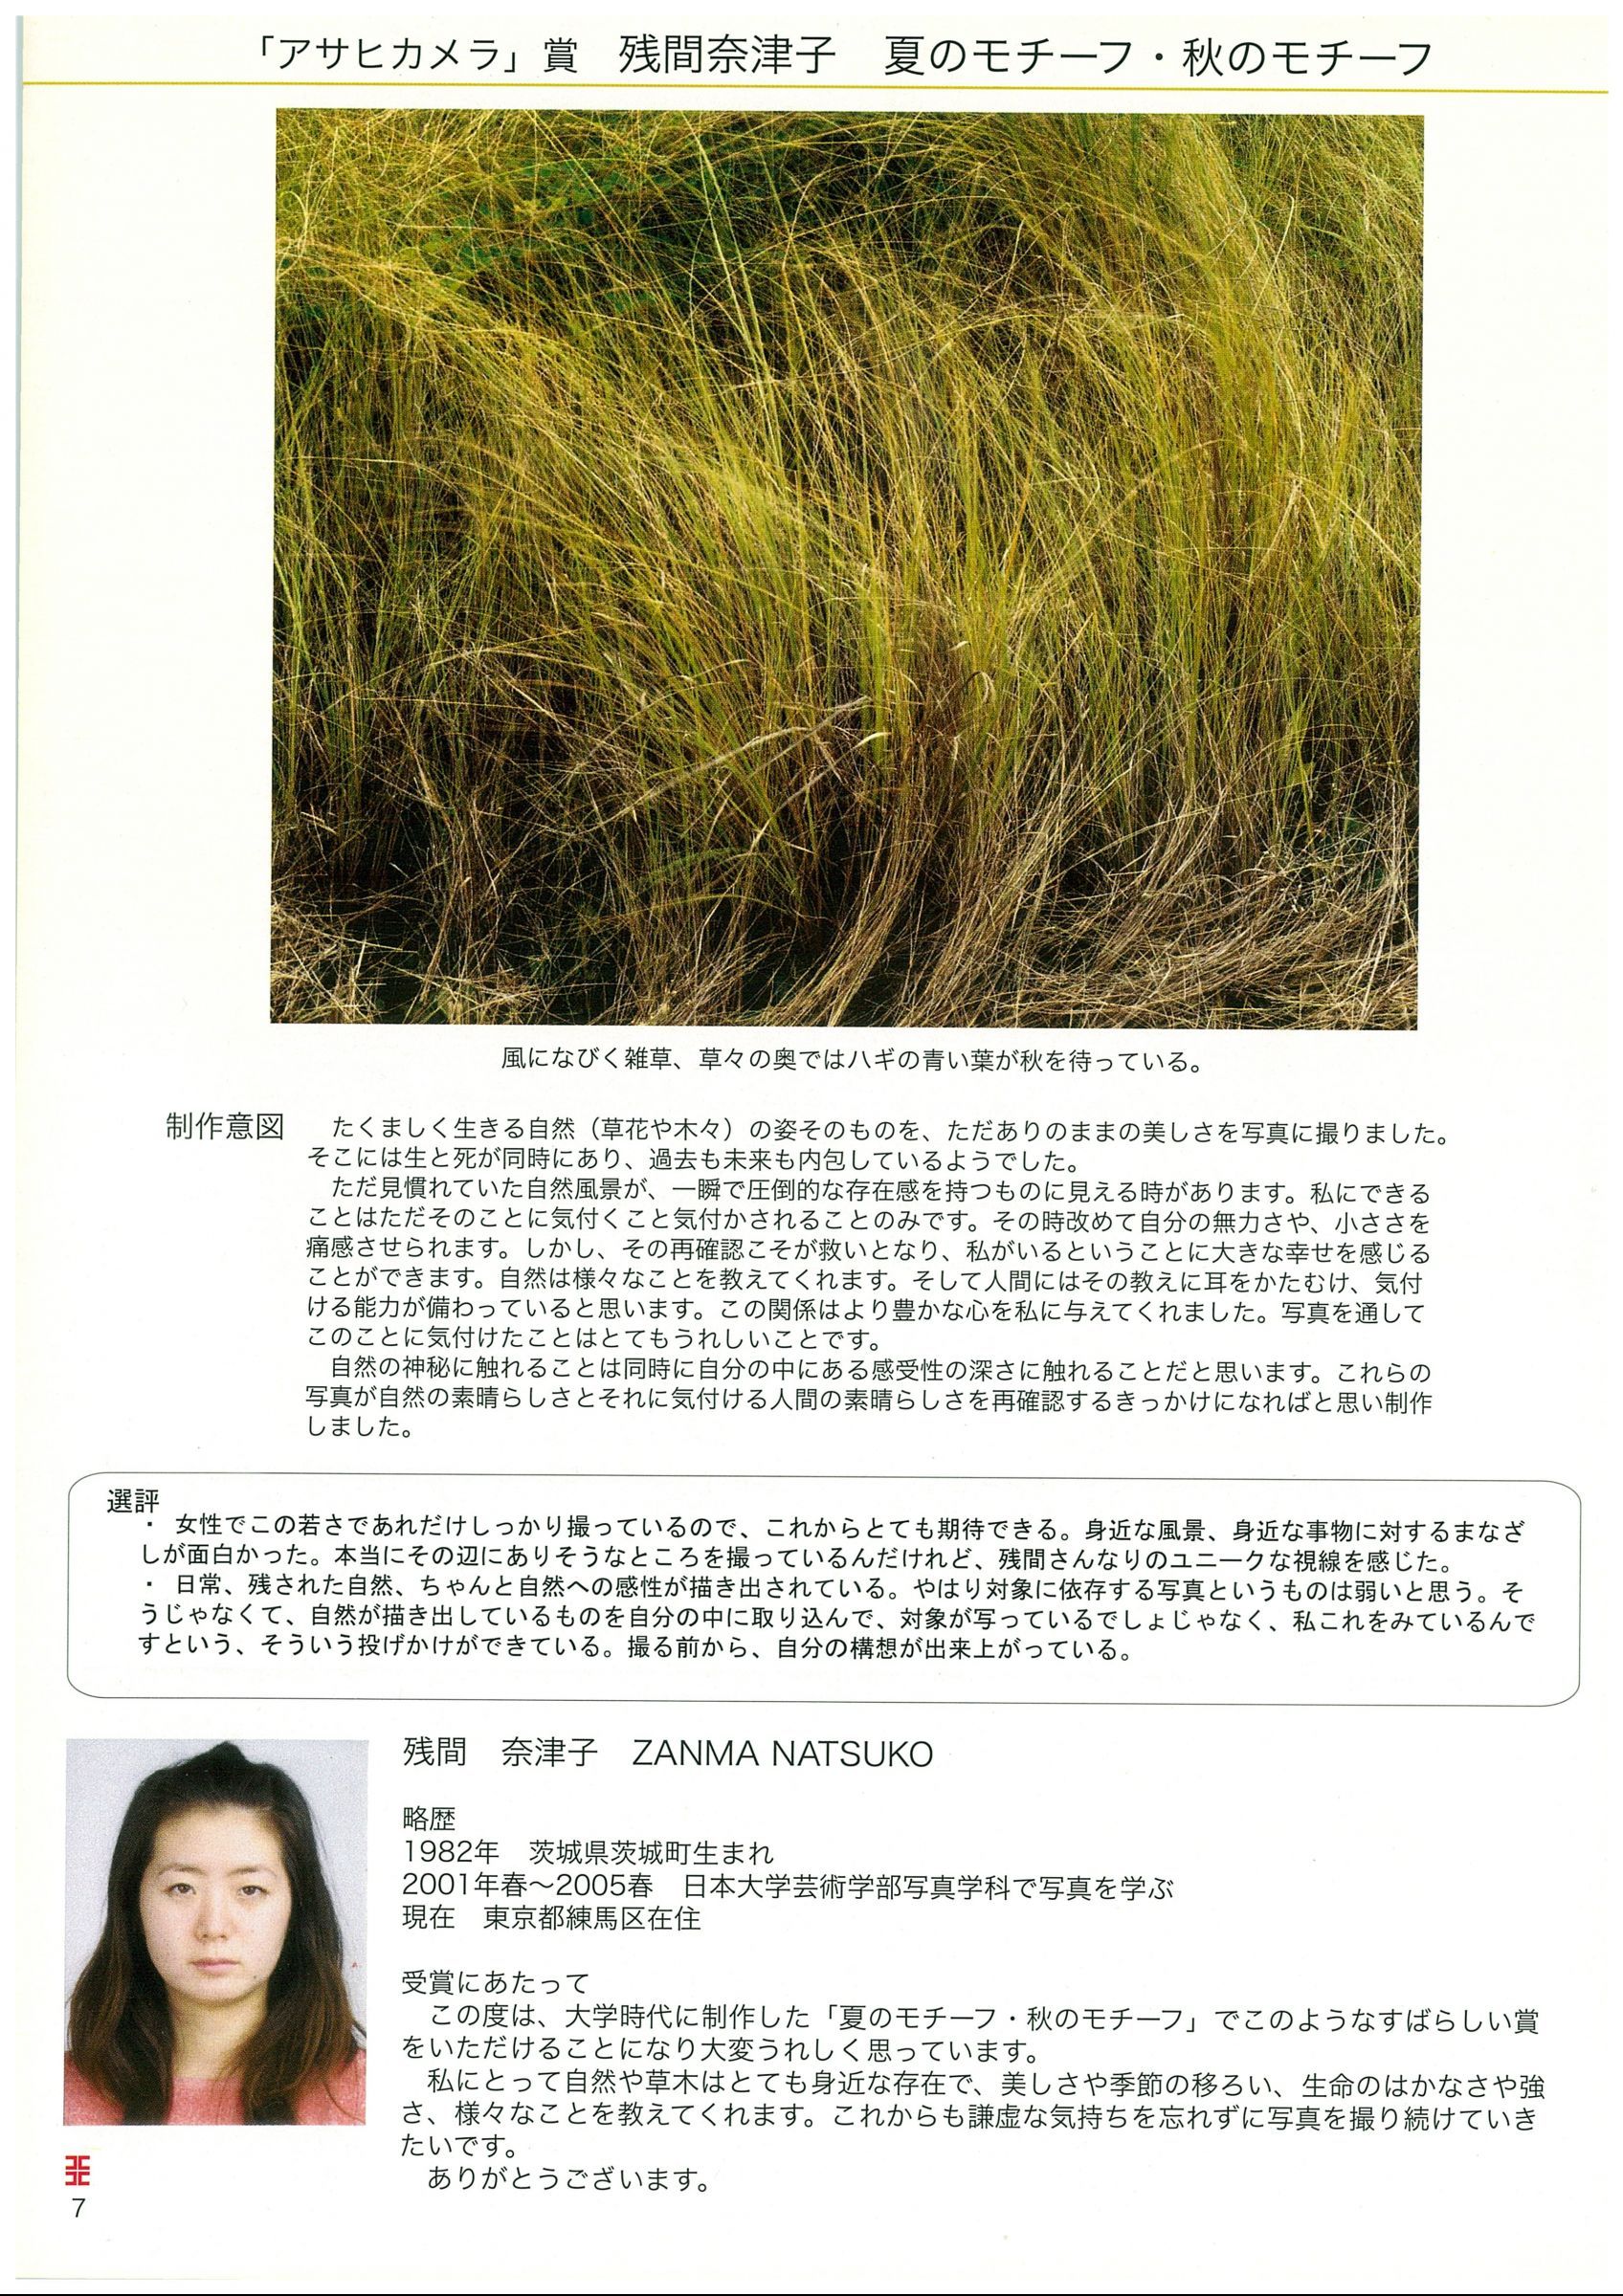 「アサヒカメラ」賞　残間奈津子　夏のモチーフ・秋のモチーフ
風になびく雑草、草々の奥ではハギの青い葉が秋を待っている。
制作意図
　たくましく生きる自然（草花や木々）の姿そのものを、ただありのままの美しさを写真に撮りました。
そこには生と死が同時にあり、過去も未来も内包しているようでした。
　ただ見慣れていた自然風景が、一瞬で圧倒的な存在感を持つものに見える時があります。私にできる
ことはただそのことに気付くこと気付かされることのみです。その時改めて自分の無力さや、小ささを
痛感させられます。しかし、その再確認こそが救いとなり、私がいるということに大きな幸せを感じる
ことができます。自然は様々なことを教えてくれます。そして人間にはその教えに耳をかたむけ、気付
ける能力が備わっていると思います。この関係はより豊かな心を私に与えてくれました。写真を通して
このことに気付けたことはとてもうれしいことです。
　自然の神秘に触れることは同時に自分の中にある感受性の深さに触れることだと思います。これらの
写真が自然の素晴らしさとそれに気付ける人間の素晴らしさを再確認するきっかけになればと思い制作
しました。
選評
・ 女性でこの若さであれだけしっかり撮っているので、これからとても期待できる。身近な風景、身近な事物に対するまなざ
しが面白かった。本当にその辺にありそうなところを撮っているんだけれど、残間さんなりのユニークな視線を感じた。
・ 日常、残された自然、ちゃんと自然への感性が描き出されている。やはり対象に依存する写真というものは弱いと思う。そ
うじゃなくて、自然が描き出しているものを自分の中に取り込んで、対象が写っているでしょじゃなく、私これをみているんで
すという、そういう投げかけができている。撮る前から、自分の構想が出来上がっている。
残間　奈津子　ZANMA NATSUKO
略歴
1982年　茨城県茨城町生まれ
2001年春～2005春　日本大学芸術学部写真学科で写真を学ぶ
現在　東京都練馬区在住
受賞にあたって
　この度は、大学時代に制作した「夏のモチーフ・秋のモチーフ」でこのようなすばらしい賞
をいただけることになり大変うれしく思っています。
　私にとって自然や草木はとても身近な存在で、美しさや季節の移ろい、生命のはかなさや強
さ、様々なことを教えてくれます。これからも謙虚な気持ちを忘れずに写真を撮り続けていき
たいです。
　ありがとうございます。
7